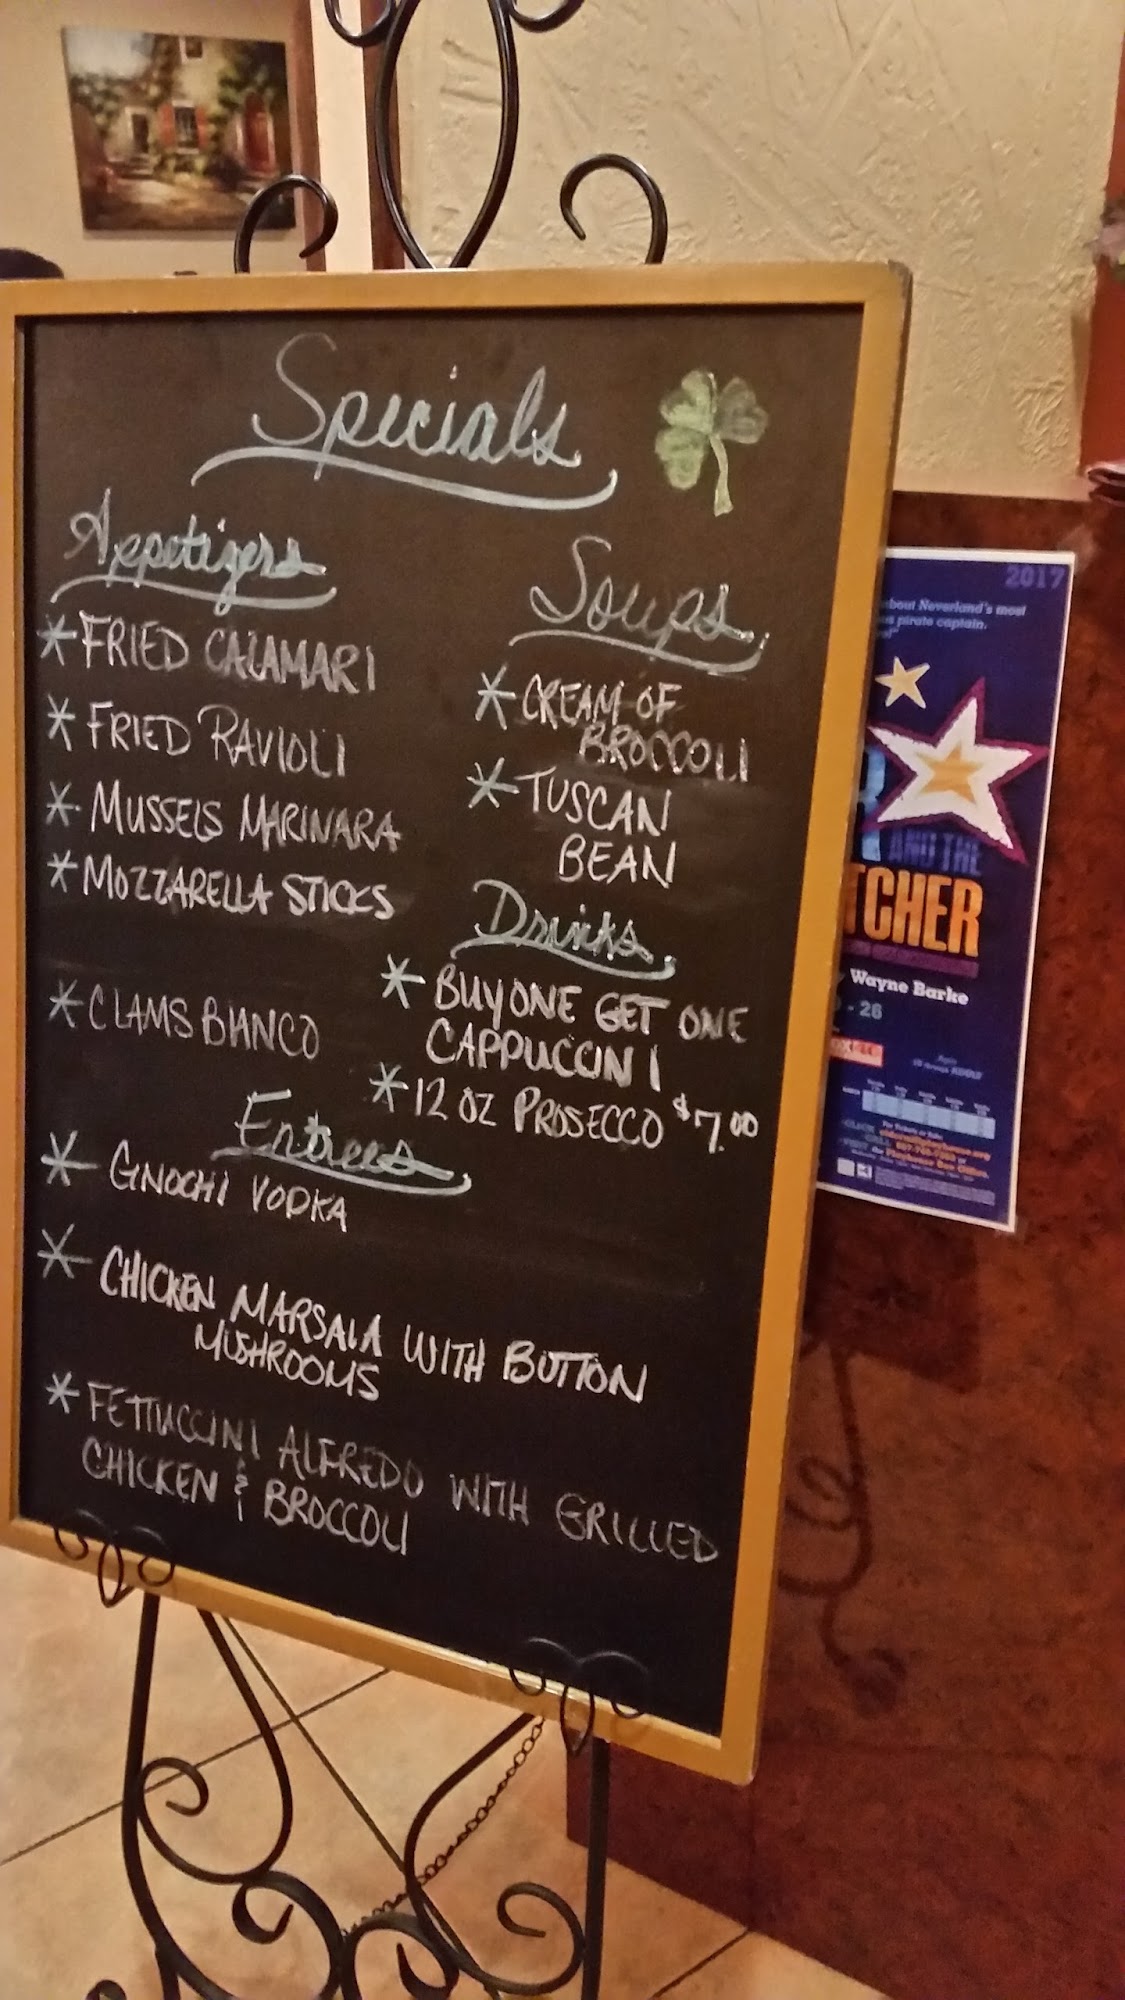 Specials
Appetizers
* FRIED CALAMARI
* FRIED RAVIOLI
* MUSSELS MARINARA
* MOZZARELLA STICKS
* CLAMS BIANCO
Soups
* CREAM OF
BROCCOLI
* TUSCAN
BEAN
Drinks
* BUY ONE GET ONE
CAPPUCCINI
* 12 OZ PROSECCO $7.00
Entrees
* GNOCHI VODKA
* CHICKEN MARSALA WITH BUTTON
MUSHROOMS
* FETTUCCINI ALFREDO WITH GRILLED
CHICKEN & BROCCOLI
2017
about Neverland's most
us pirate captain.
R
AND THE
TCHER
Wayne Barke
- 26